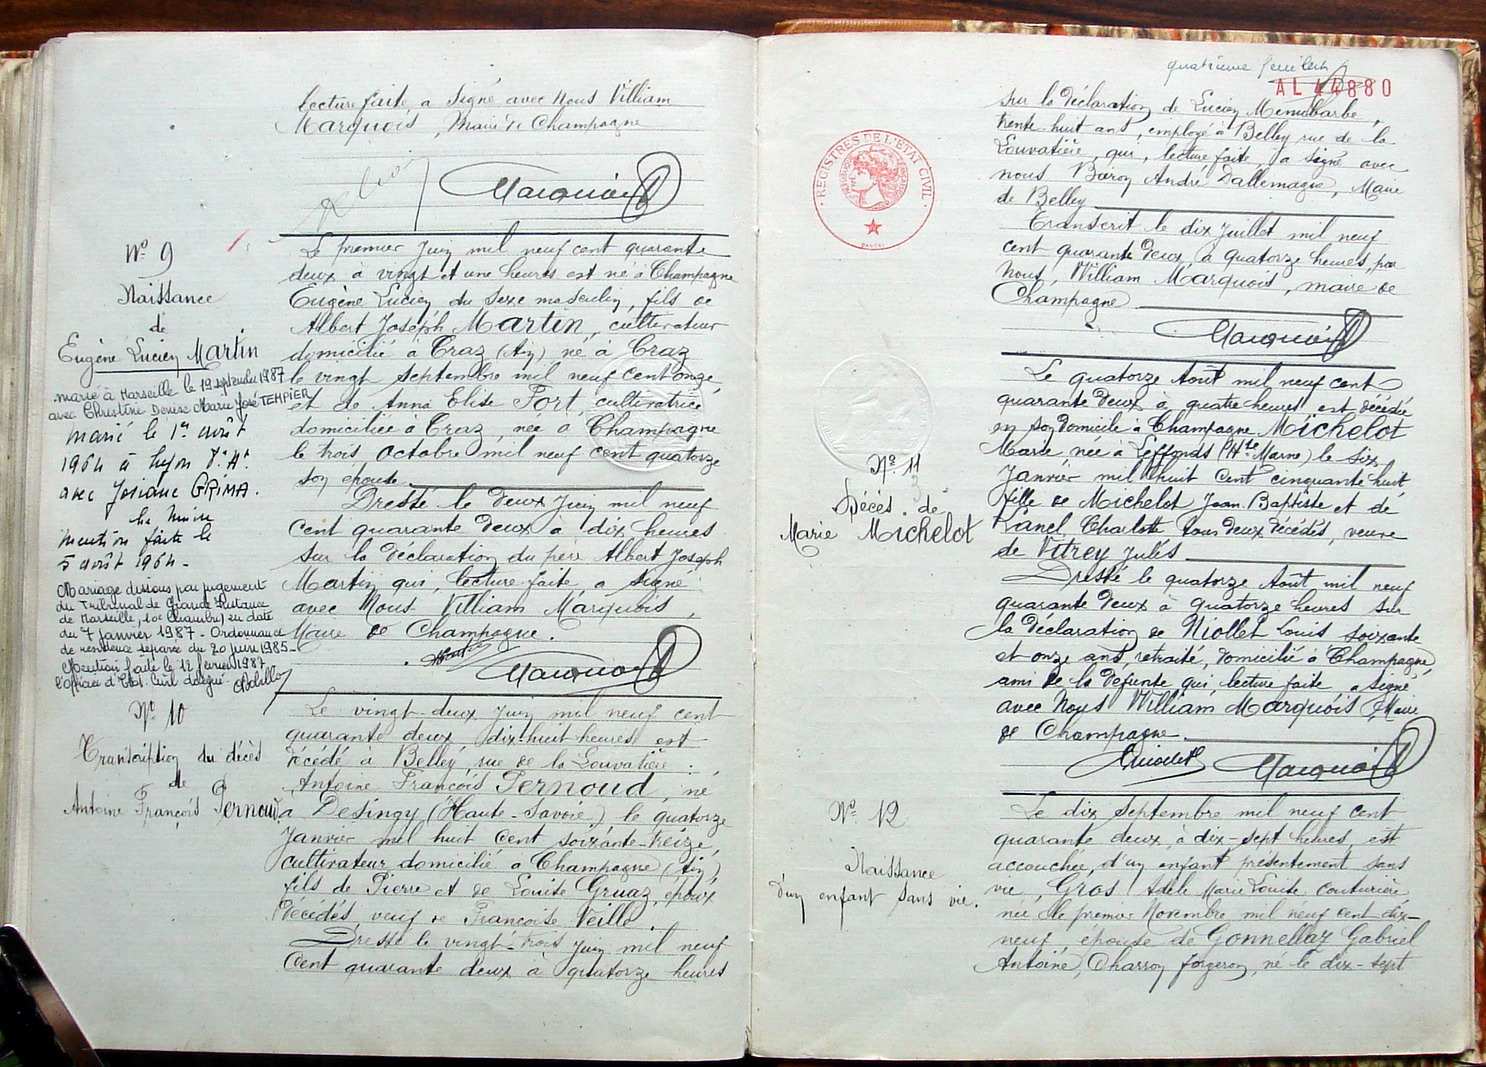 lecture faite, a signé avec Nous William
Marquois, Maire de Champagne
Marquois
Nº 9
Naissance
de
Eugène Lucien Martin
marié à Marseille le 19 septembre 1987
avec Christine Denise Marie José TEMPIER
marié le 1er août
1964 à Lyon 7e Ar.
avec Josiane GRIMA.
Le Maire
mention faite le
5 août 1964 -
Mariage dissous par jugement
du Tribunal de Grande Instance
de Marseille, 10e Chambre, en date
du 7 janvier 1987 - Ordonnance
de résidence séparée du 20 juin 1985 -
Mention faite le 12 février 1987
l'officier d'Etat Civil délégué
Le premier Juin mil neuf cent quarante
deux à vingt et une heures est né à Champagne
Eugène Lucien du sexe masculin, fils de
Albert Joseph Martin, cultivateur
domicilié à Craz (Ain) né à Craz
le vingt septembre mil neuf cent onze,
et de Anna Elise Fort, cultivatrice
domiciliée à Craz, née à Champagne
le trois octobre mil neuf cent quatorze
son épouse
Dressé le deux Juin mil neuf
cent quarante deux à dix heures
sur la déclaration du père Albert Joseph
Martin qui, lecture faite, a signé
avec Nous William Marquois,
Maire de Champagne.
Martin Marquois
Nº 10
Transcription du décès
de
Antoine François Pernoud
Le vingt-deux Juin mil neuf cent
quarante deux, dix-huit heures est
décédé à Belley rue de la Louvatière :
Antoine François Pernoud, né
à Desingy (Haute-Savoie,) le quatorze
Janvier mil huit cent soixante-treize,
cultivateur domicilié à Champagne (Ain),
fils de Pierre et de Louise Gruaz, époux
décédés, veuf de Françoise Veille.
Dressé le vingt-trois Juin mil neuf
cent quarante deux à quatorze heures
quatrième feuillet
AL 44880
REGISTRES DE L'ETAT CIVIL
sur la déclaration de Lucien Menubarbe,
trente-huit ans, employé à Belley rue de la
Louvatière, qui, lecture faite, a signé avec
nous Baron André Dallemagne, Maire
de Belley
Transcrit le dix Juillet mil neuf
cent quarante deux, à quatorze heures, par
Nous, William Marquois, maire de
Champagne
Marquois
Nº 11
Décès de
Marie Michelot
Le quatorze Août mil neuf cent
quarante deux à quatre heures est décédée
en son domicile à Champagne, Michelot
Marie née à Leffonds (Hte Marne) le six
Janvier mil huit cent cinquante huit
fille de Michelot Jean-Baptiste et de
Ranel Charlotte tous deux décédés, veuve
de Vitrey Jules
Dressé le quatorze Août mil neuf
quarante deux à quatorze heures sur
la déclaration de Niollet Louis soixante
et onze ans, retraité, domicilié à Champagne,
ami de la défunte qui, lecture faite a signé
avec Nous William Marquois Maire
de Champagne.
Marquois
Nº 12
Naissance
d'un enfant sans vie.
Le dix septembre mil neuf cent
quarante deux, à dix-sept heures, est
accouchée, d'un enfant présentement sans
vie, Gros Adèle Marie Louise couturière
née le premier Novembre mil neuf cent dix-
neuf, épouse de Gonnellaz Gabriel
Antoine, Charron forgeron, né le dix-sept